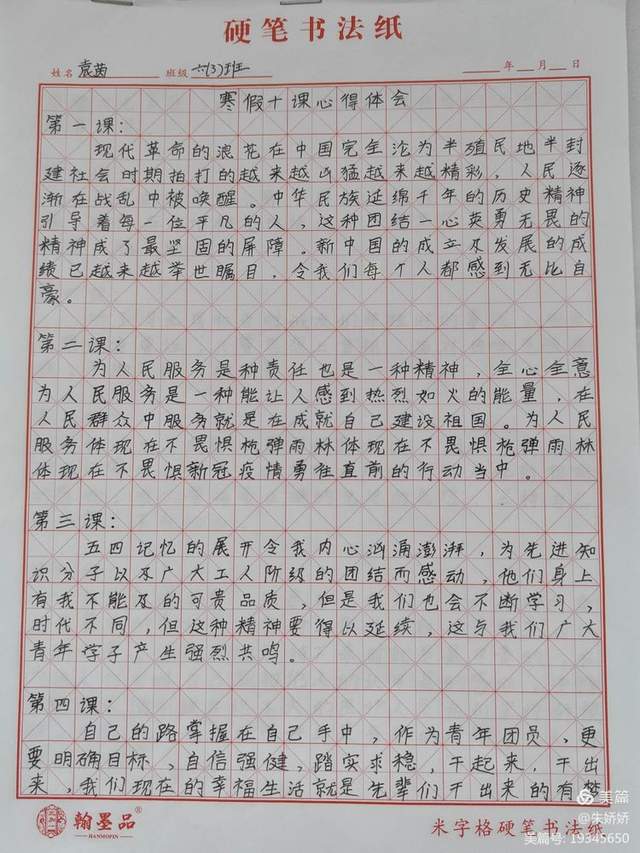 硬笔书法纸
姓名 袁茵 班级 六(3)班 年 月 日
寒假十课心得体会
第一课：
现代革命的浪花在中国完全沦为半殖民地半封
建社会时期拍打的越来越凶猛越来越精彩，人民逐
渐在战乱中被唤醒。中华民族延绵千年的历史精神
引导着每一位平凡的人，这种团结一心英勇无畏的
精神成了最坚固的屏障。新中国的成立及发展的成
绩已越来越举世瞩目，令我们每个人都感到无比自
豪。
第二课：
为人民服务是种责任也是一种精神，全心全意
为人民服务是一种能让人感到热烈如火的能量，在
人民群众中服务就是在成就自己建设祖国。为人民
服务体现在不畏惧枪弹雨林体现在不畏惧枪弹雨林
体现在不畏惧新冠疫情勇往直前的行动当中。
第三课：
五四记忆的展开令我内心汹涌澎湃，为先进知
识分子以及广大工人阶级的团结而感动，他们身上
有我不能及的可贵品质，但是我们也会不断学习，
时代不同，但这种精神要得以延续，这与我们广大
青年学子产生强烈共鸣。
第四课：
自己的路掌握在自己手中，作为青年团员，更
要明确目标，自信强健，踏实求稳，干起来，干出
来，我们现在的幸福生活就是先辈们干出来的有
翰墨品®
HANMOPIN
米字格硬笔书法纸
美篇
@朱娇娇
美篇号：19345650